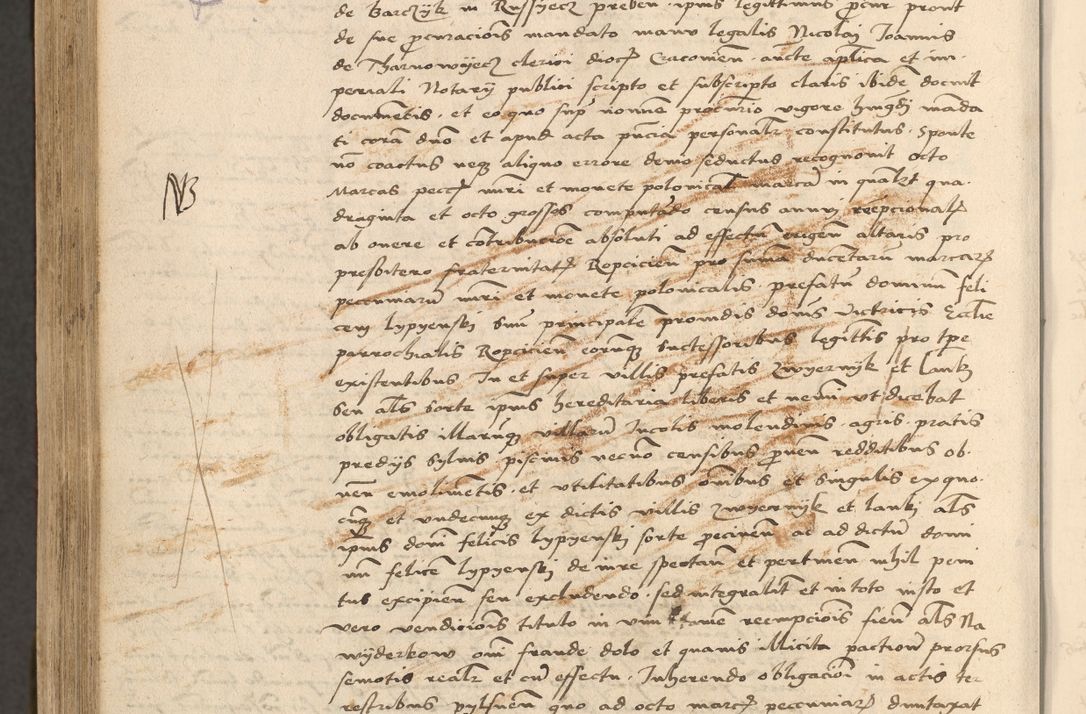 de Barczyk in Russyecz preben ipius legittimus pcur prout
de sue pcuraciois mandato manu legalis Nicolai Joannis
de Tharnowyecz clerici dioc Cracovien aucte aplica et im
periali Notarij publici scripto et subscripto claris ibide docuit
documetis et eo quo sup nomine procurio vigore hmoi manda
ti cora dno et apud acta pncia personalr constitutus Sponte
no coactus neq aliquo errore devio seductus recognovit octo
Marcas pecc nuri et monete polonicat marca in qualzt qua
draginta et octo grossos computado census annui reempcional
ab onere et cotribucioe absoluti ad effectu erigen altaris pro
presbitero fraternitat Ropcicien pro suma ducetaru marcar
pecuniaru nuri et monete polonicalis prefatu dominu feli
cem lypyenski suu principale providis dnis Victricis Ecclie
parrochialis Ropcicien eorumq successoribus legittis pro tpe
existentibus In et super villis prefatis Zwyernyk et lanki
seu als sorte ipius hereditaria liberis et nemi ut dicebat
obligatis illaruq villaru Incolis molendinis agris pratis
predijs sylvis piscinis necno censibus proven redditibus ob
nen emolimetis et utilitatibus omibus et singulis ex quo
cuq et undecunq ex dictis villis Zwyernyk et lanki als
ipius dni felicis lypyenski sorte pcinen ac ad dictu domi
nu felice lypyenski de iure spectan et pertinen nihil peni
tus excipien seu excludendo sed integralit et in toto iusto et
vero vendiciois titulo in vim tame reempciois sien als Na
wyderkow omi fraude dolo et quavis illicita paction prorsus
semotis realr et cu effectu Inherendo obligacioi in actis ter
restribus pylsnen quo ad octo marc pecuniar duntaxat
NB